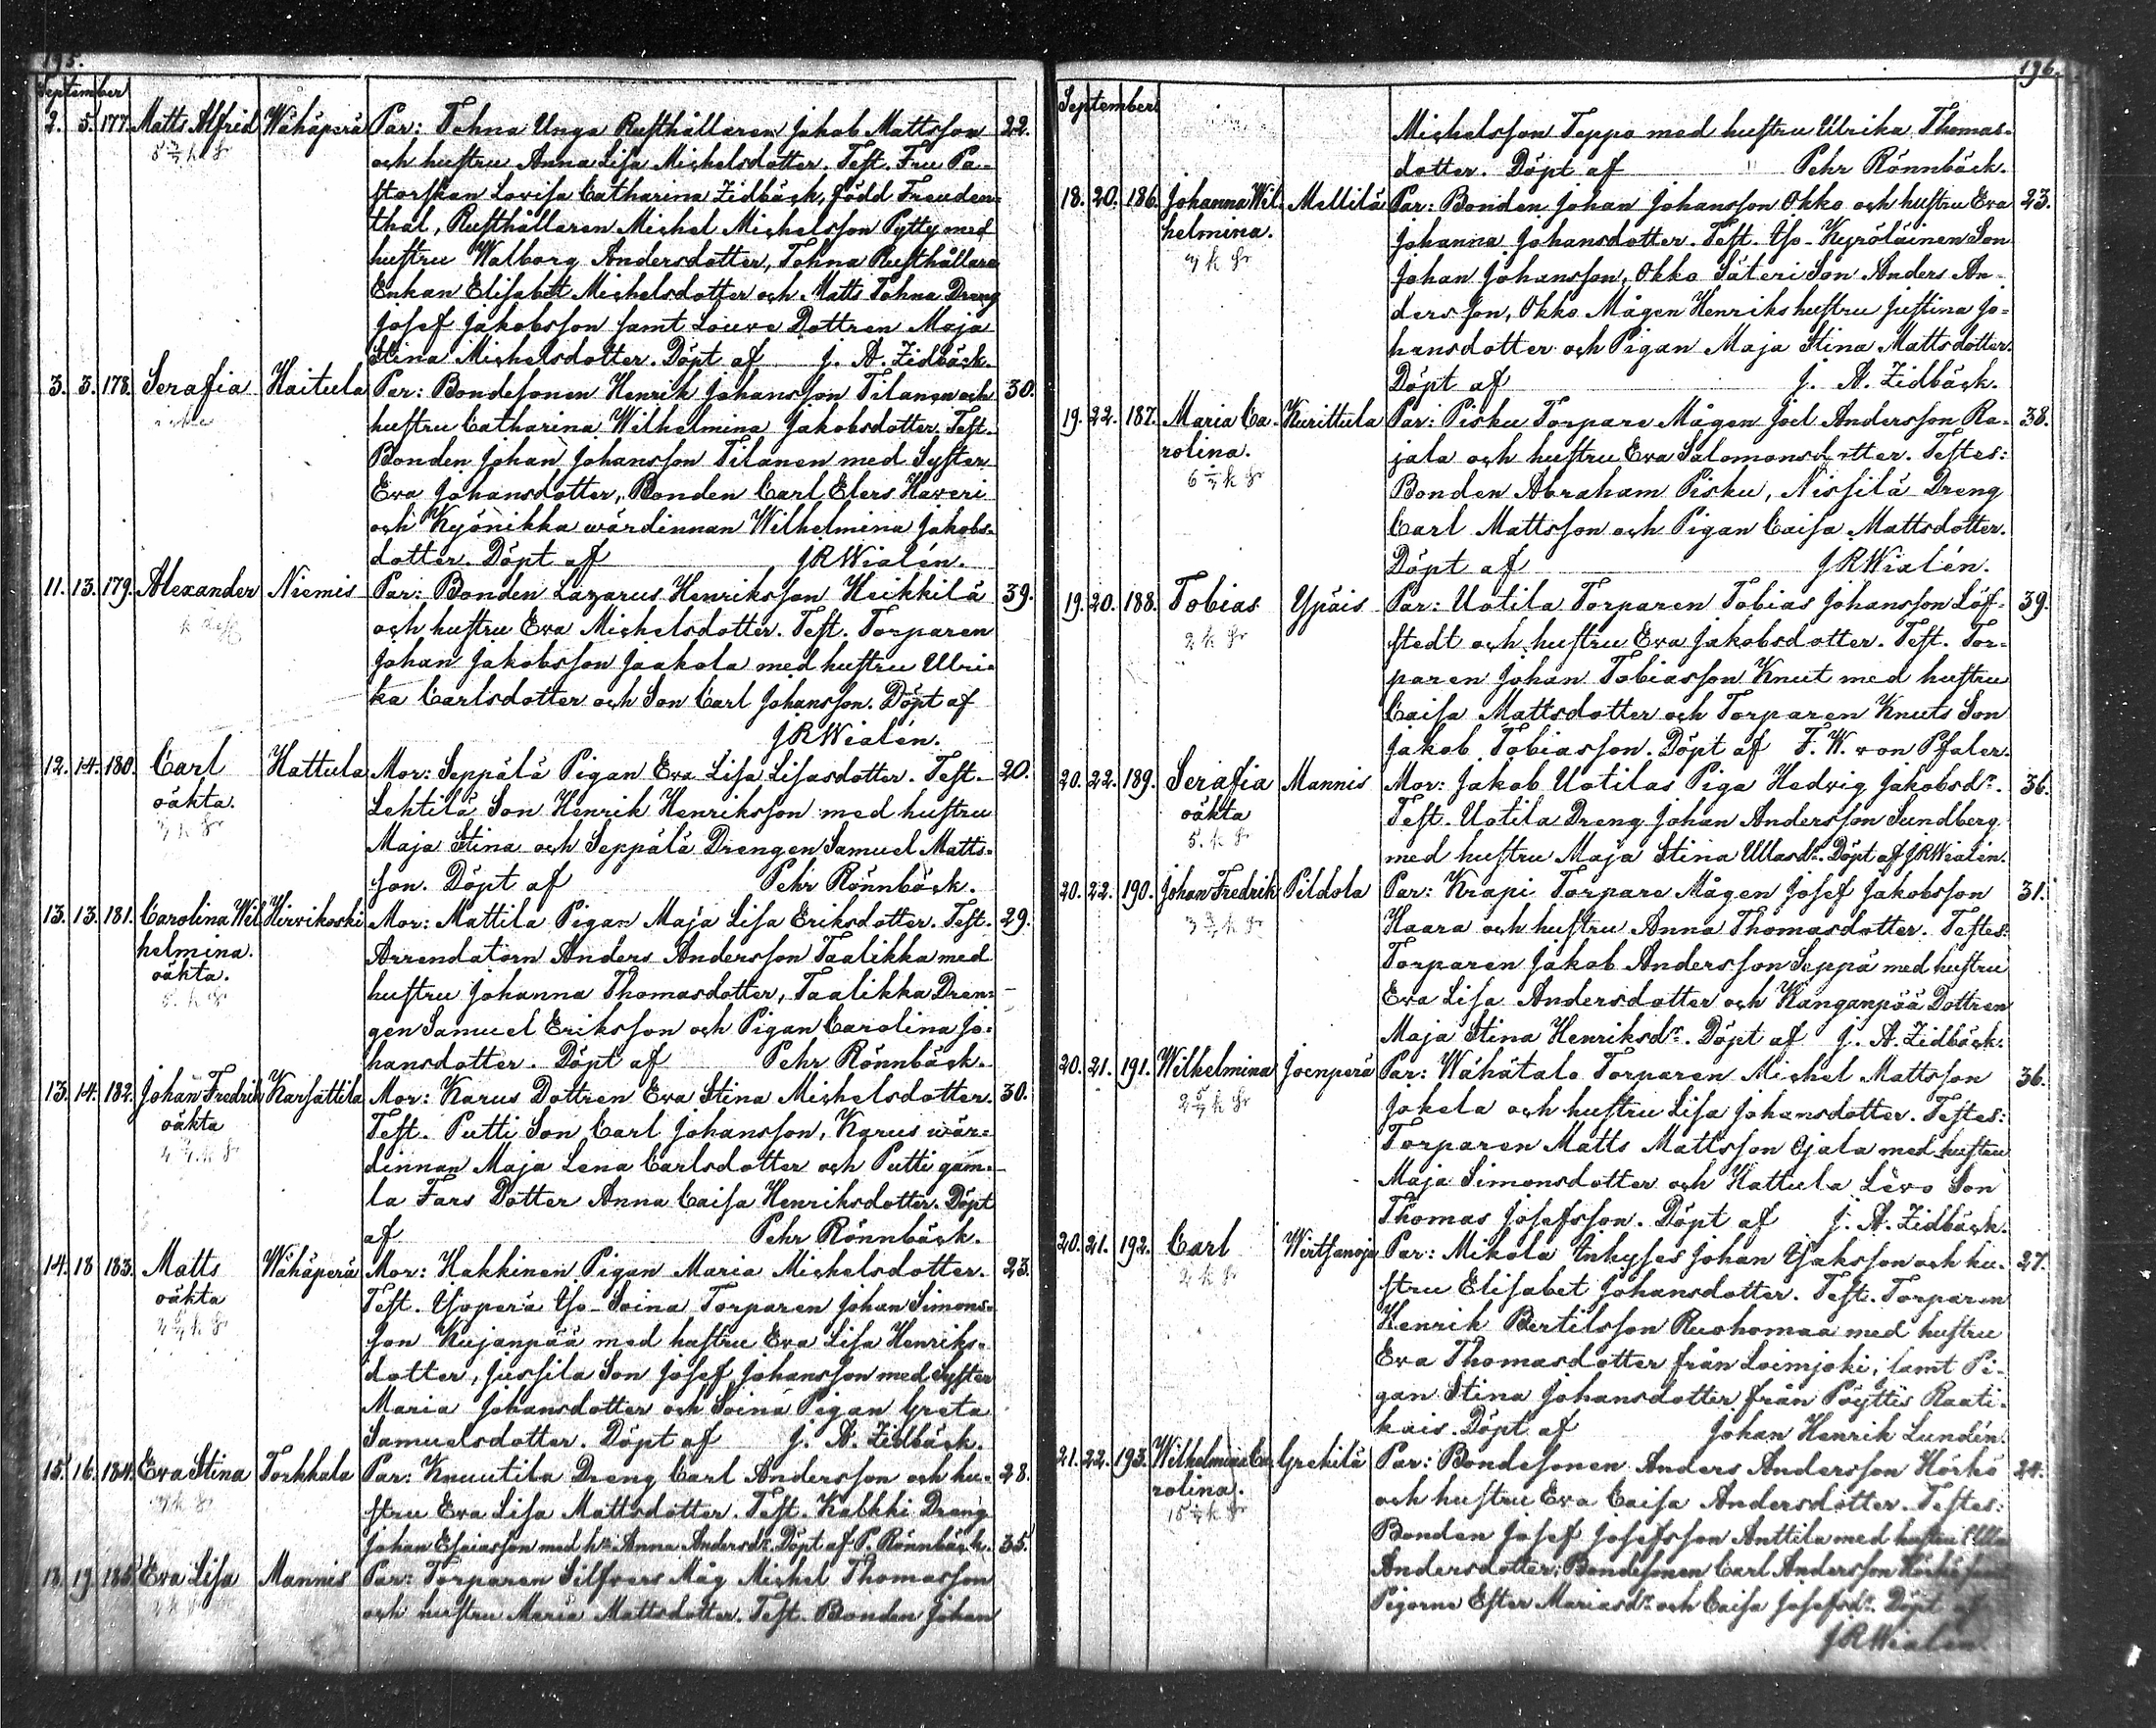 195.
September
2. 5. 177. Matts Alfrid Wähäperä Par: Tohna Unga Rusthållaren Jakob Mattsson 22.
och hustru Anna Lisa Michelsdotter. Test. Fru Pa-
storskan Lovisa Catharina Zidbäck, född Freuden-
thal, Rusthållaren Michel Michelsson Pytty med
hustru Walborg Andersdotter, Tohna Rusthållare
Enkan Elisabet Michelsdotter och Matts Tohna Dreng
Josef Jakobsson samt Louve Dottren Maja
Stina Michelsdotter. Döpt af J. A. Zidbäck.
3. 3. 178. Serafia Haitula Par: Bondesonen Henrik Johansson Tilanen och 30.
hustru Catharina Wilhelmina Jakobsdotter. Test.
Bonden Johan Johansson Tilanen med Syster
Eva Johansdotter, Bonden Carl Elers Haveri
och Kyönikka wärdinnan Wilhelmina Jakobs-
dotter. Döpt af JRWialén.
11. 13. 179. Alexander Niemis Par: Bonden Lazarus Henriksson Heikkilä 39.
och hustru Eva Michelsdotter. Test. Torparen
Johan Jakobsson Jaakola med hustru Ulri-
ka Carlsdotter och Son Carl Johansson. Döpt af
JRWialén.
12. 14. 180. Carl Hattula Mor: Seppälä Pigan Eva Lisa Lisasdotter. Test. 20.
oäkta. Lehtilä Son Henrik Henriksson med hustru
Maja Stina och Seppälä Drengen Samuel Matts-
son. Döpt af Pehr Rönnbäck.
13. 13. 181. Carolina Wil- Hirvikoski Mor: Mattila Pigan Maja Lisa Eriksdotter. Test. 29.
helmina. Arrendatorn Anders Andersson Taalikka med
oäkta. hustru Johanna Thomasdotter, Taalikka Dren-
gen Samuel Eriksson och Pigan Carolina Jo-
hansdotter. Döpt af Pehr Rönnbäck.
13. 14. 182. Johan Fredrik Karsattila Mor: Karus Dottren Eva Stina Michelsdotter. 30.
oäkta Test. Putti Son Carl Johansson, Karus wär-
dinnan Maja Lena Carlsdotter och Putti gam-
la Fars Dotter Anna Caisa Henriksdotter. Döpt
af Pehr Rönnbäck.
14. 18 183. Matts Wähäperä Mor: Hakkinen Pigan Maria Michelsdotter. 23.
oäkta Test. Yvperä Yso-Soina Torparen Johan Simons-
son Kujanpää med hustru Eva Lisa Henriks-
dotter, Jussila Son Josef Johansson med Syster
Maria Johansdotter och Soina Pigan Greta
Samuelsdotter. Döpt af J. A. Zidbäck.
15. 16. 184. Eva Stina Torkkala Par: Knuutila Dreng Carl Andersson och hu- 28.
stru Eva Lisa Mattsdotter. Test. Kalkki Dreng
Johan Esaiasson med hu Anna Andersdr. Döpt af P. Rönnbäck. 35.
18. 19. 185. Eva Lisa Mannis Par: Torparen Silfvers Måg Michel Thomasson
och hustru Maria Mattsdotter. Test. Bonden Johan
196.
September
Michelsson Teppo med hustru Ulrika Thomas-
dotter. Döpt af Pehr Rönnbäck.
18. 20. 186. Johanna Wil- Mellilä Par: Bonden Johan Johansson Okko och hustru Eva 23.
helmina. Johanna Johansdotter. Test. Yso-Kyröläinen Son
Johan Johansson, Okko Säteri Son Anders An-
dersson, Okko Mågen Henriks hustru Justina Jo-
hansdotter och Pigan Maja Stina Mattsdotter.
Döpt af J. A. Zidbäck.
19. 22. 187. Maria Ca- Kurittula Par: Pisku Torpare Mågen Joel Andersson Ra- 38.
rolina. jala och hustru Eva Salomonsdotter. Testes:
Bonden Abraham Pisku, Nissilä Dreng
Carl Mattsson och Pigan Caisa Mattsdotter.
Döpt af JRWialén.
19. 20. 188. Tobias Ypäis Par: Uotila Torparen Tobias Johansson Löf- 39.
stedt och hustru Eva Jakobsdotter. Test. Tor-
paren Johan Tobiasson Knut med hustru
Caisa Mattsdotter och Torparen Knuts Son
Jakob Tobiasson. Döpt af F. W. von Pfaler.
20. 22. 189. Serafia Mannis Mor: Jakob Uotilas Piga Hedvig Jakobsdr. 36.
oäkta Test. Uotila Dreng Johan Andersson Sundberg
med hustru Maja Stina Ullasdr. Döpt af JRWialén.
20. 22. 190. Johan Fredrik Pildola Par: Krapi Torpare Mågen Josef Jakobsson 31.
Haara och hustru Anna Thomasdotter. Testes:
Torparen Jakob Andersson Seppä med hustru
Eva Lisa Andersdotter och Kanganpää Dottren
Maja Stina Henriksdr. Döpt af J. A. Zidbäck.
20. 21. 191. Wilhelmina Joenperä Par: Wähätalo Torparen Michel Mattsson 36.
Jokela och hustru Lisa Johansdotter. Testes:
Torparen Matts Mattsson Ojala med hustru
Maja Simonsdotter och Hattula Levo Son
Thomas Josefsson. Döpt af J. A. Zidbäck.
20. 21. 192. Carl Wirtsanoja Par: Mikola Inhyses Johan Isaksson och hu- 27.
stru Elisabet Johansdotter. Test. Torparen
Henrik Bertilsson Ruohomaa med hustru
Eva Thomasdotter från Loimjoki, samt Pi-
gan Stina Johansdotter från Pöyttis Raati-
kais. Döpt af Johan Henrik Lundén.
21. 22. 193. Wilhelmina Ca- Grekilä Par: Bondesonen Anders Andersson Hörkö 24.
rolina. och hustru Eva Caisa Andersdotter. Testes:
Bonden Josef Josefsson Anttila med hustru Ulla
Andersdotter, Bondesonen Carl Andersson Hörkö
Pigorne Ester Mariasdr. och Caisa Josefsdr. Döpt af
JRWialén.